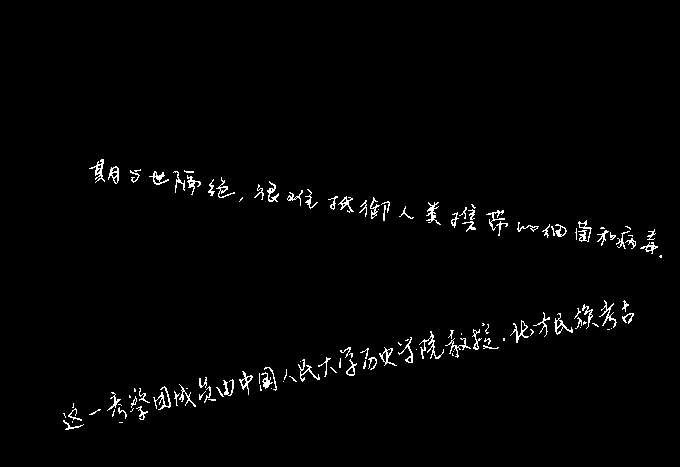 期与世隔绝，很难抵御人类携带的细菌和病毒.
这一考察团成员由中国人民大学历史学院教授.北方民族考古